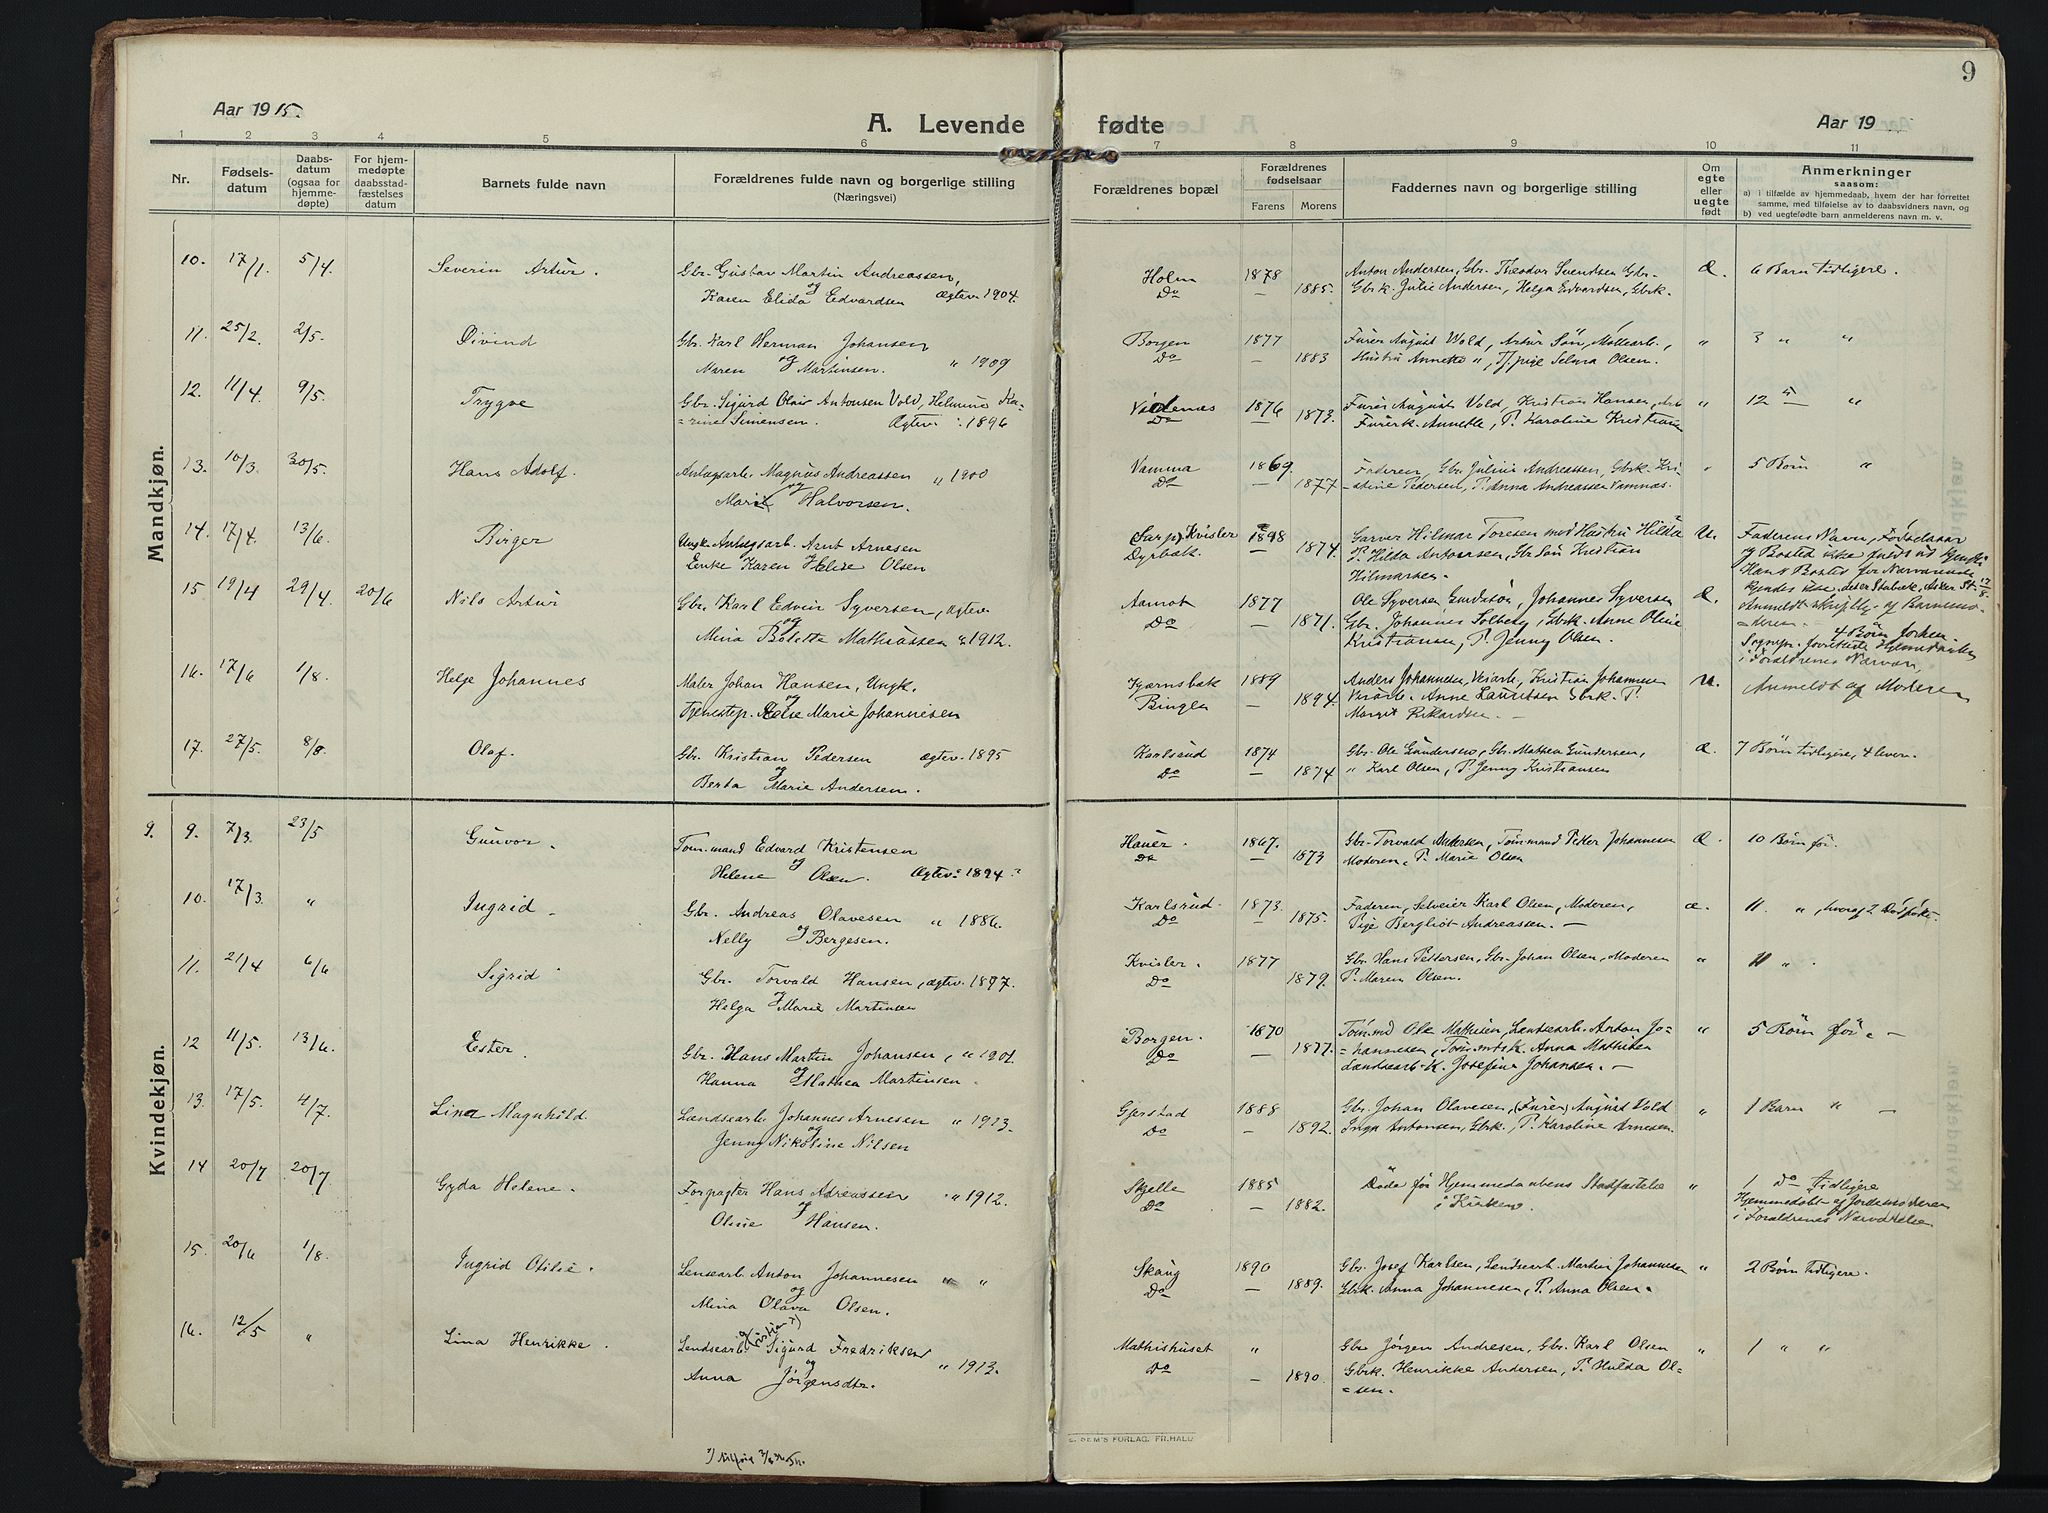 9
Aar 1915.
A. Levende fødte
Aar 19
1 2 3 4 5 6 7 8 9 10 11
Nr.
Fødsels-
datum
Daabs-
datum
(ogsaa for
hjemme-
døpte)
For hjem-
medøpte
daabsstad-
fæstelses
datum
Barnets fulde navn
Forældrenes fulde navn og borgerlige stilling
(Næringsvei)
Forældrenes bopæl
Forældrenes
fødselsaar
Farens Morens
Faddernes navn og borgerlige stilling
Om
egte
eller
uegte
født
Anmerkninger
saasom:
a) i tilfælde av hjemmedaab, hvem der har forrettet
samme, med tilføielse av to daabsvidners navn, og
b) ved uegtefødte barn anmelderens navn m. v.
Mandkjøn.
10. 17/1. 5/4. Severin Artur. Gbr. Gustav Martin Andreassen, Holm 1878 Anton Andersen, Gbr. Theodor Svendsen Gbr. Æ. 6 Barn tidligere.
og
Karen Elida Edvardsen Ægtev. 1904. Do — 1885. Gbrk. Julie Andersen, Helga Edvardsen, Gbrk.
11. 25/2. 2/5. Øivind Gbr. Karl Herman Johansen Borgen 1877 Furer August Vold, Artur Søn, Møllearb., " 3 " "
og
Maren Martinsen. " 1909 Do — 1883 Hustru Annette ", Tj.pige Selma Olsen.
12. 11/4. 9/5. Trygve Gbr. Sigurd Olav Antonsen Vold, Helmine Ka- 1876 Furer August Vold, Kristian Hansen, " 12 " "
=rine Simensen. Ægtev. 1896 Do — 1873. Furerk. Annette, P. Karoline Kristiansen
13. 10/3. 30/5. Hans Adolf. Anlægsarb. Magnus Andreassen " 1900 Vamma 1869. Faderen, Gbr. Julius Andreassen, Gbrk. Kri- " 5 Børn "
og
Marie Halvorsen. Do — 1877 =stine Pedersen, P. Anna Andreassen Vamnæs.
14. 17/4. 13/6. Birger Ungk. Anlægsarb. Arnt Arnesen Kvisler 1898 Garver Hilmar Toresen med Hustru Hilda U. Faderens Navn, Fødselsaar
Enke Karen Helise Olsen Dyrbak. 1874. P. Hilda Antonsen, Gbr. Søn Kristian og Bosted ikke
Hilmarsen.
15 19/4 29/4. 20/6 Nils Artur Gbr. Karl Edvin Syversen, Ægtev. Aamot 1877 Ole Syversen Gundsøn, Johannes Syversen Æ.
og
Mina Bolette Mathiassen 1912. Do — 1871. Gbr. Johannes Solberg, Gbrk. Anne Oline 4 Børn
Kristiansen, P. Jenny Olsen.
i Forældrenes Nærvær.
16. 17/6 1/8. Helge Johannes Maler Johan Hansen, Ungk. Kjærnsbæk 1889 Anders Johannesen, Kristian Johannesen U. Anmeldt af Moderen
og
Tjenestep. Else Marie Johannesen Bingen — 1894. Anne Lauritsen Gbrk. P.
Margit Rikardsen. —
17. 27/5. 8/8. Olaf. Gbr. Kristian Pedersen Ægtev. 1895 Karlsrud 1874 Gbr. Ole Gundersen, Gbr. Mathea Gundersen, Æ. 7 Børn tidligere, 4 lever.
og
Berta Marie Andersen. Do — 1874 " Karl Olsen, P. Jenny Kristiansen
Kvindekjøn.
9. 9. 7/3. 23/5 Gunvor. Tøm.mand Edvard Kristensen Hauer. 1867. Gbr. Torvald Andersen, Tømmermand Peder Johannesen Æ. 10 Børn før.
og
Helene Olsen. Ægtev. 1894. Do — 1873 Moderen, P. Marie Olsen
10. 17/3. " Ingrid. Gbr. Andreas Olavesen " 1886. Karlsrud. 1873. Faderen, Karl Olsen, Moderen, Æ. 11. ", hvoraf 2 Dødfødte.
og
Nelly Bergesen. Do — 1875. Pige Bergliot Andreassen. —
11. 21/4 6/6 Sigrid Gbr. Torvald Hansen, Ægtev. 1897. Kvisler. 1877 Gbr. Hans Pettersen, Gbr. Johan Olsen, Moderen " 11 " .
og
Helga Marie Martinsen Do — 1879. P. Maren Olsen.
12 11/5. 13/6. Ester. Gbr. Hans Martin Johansen, " 1901. Borgen. 1870 Tøm.md Ole Mathisen, Landsearb. Anton Jo- " 5 Børn før. —
og
Hanna Mathea Martinsen. Do — 1877. =hannesen, Tøm.mdsk. Anna Mathisen
Landsearb. K. Josefine Johansen. —
13. 17/5. 4/7. Lina Magnhild. Landsearb. Johannes Arnesen " 1913. Gjerstad 1888 Gbr. Johan Olavesen, (Furer) August Vold " 1 Barn " —
og
Jenny Nikoline Nilsen Do — 1892. Inga Antonsen, Gbrk., P. Karoline Arnesen.
14 20/7 20/7. Gyda Helene. Forpagter Hans Adreassen " 1912. Skjelle 1885 Døde før Hjemmedaabens Stadfæstelse " 1 Do tidligere
og
Oline Hansen. Do — 1882. i Kirken. Hjemmedøbt af Jordemoderen
i Forældrenes Nærværelse
15. 20/6 1/8. Ingrid Otilie. Lensearb. Anton Johannesen " " Skaug 1890 Gbr. Josef Karlsen, Lendsearb. Martin Johannesen " 2 Børn tidligere.
og
Mina Olava Olsen. Do — 1889. Gbrk. Anna Johannesen, P. Anna Olsen.
16. 12/5 " Lina Henrikke. Lendsearb. (Kristian x) Sigurd Fredriksen Mathishuset " Gbr. Jørgen Andresen, Gbr. Karl Olsen " 1 " "
og " 1913.
Anna Jørgensdtr. Do — 1890. Gbrk. Henrikke Andersen, P. Hulda Ol-
=sen.
E. SEM'S FORLAG. FR.HALD